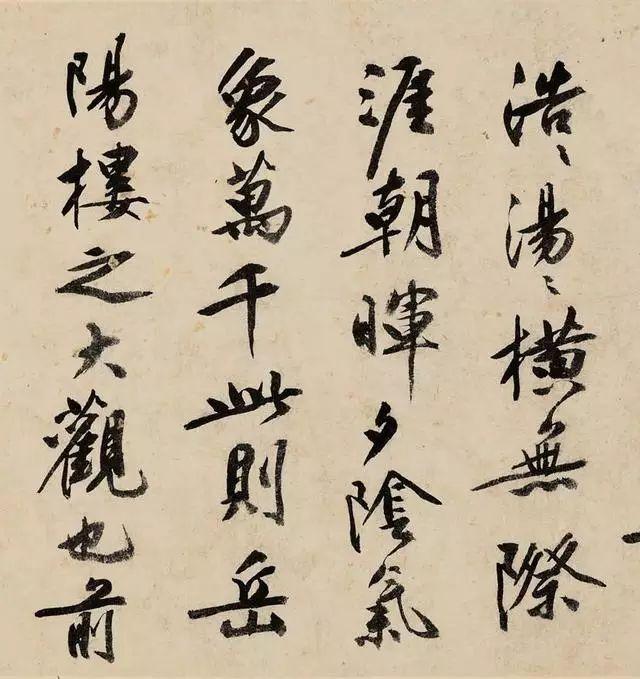 浩〻湯〻横無際
涯朝暉夕陰氣
象萬千此則岳
陽樓之大觀也前